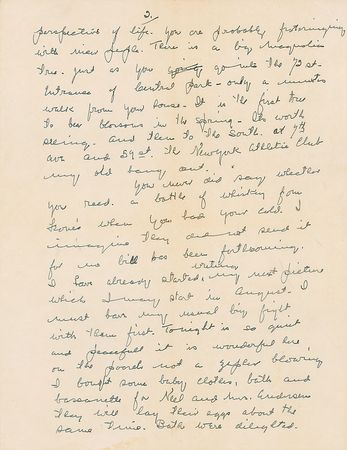 2.
perspective of life. You are probably fratornizing
with new people. There is a big magnolia
tree. just as you going go into the 72 st.
Entrance of Central Park - only a minutes
walk from your house - It is the first tree
To bear blossoms in the spring - Its worth
seeing. And then To The South. at 7th
ave and 59 st. The Newyork Athletic Club
my old hang out.
You never did say wheather
you recd. a bottle of whiskey from
when you had your cold. I
immagine they did not send it
for no bill has been forthcoming.
I have already started, writing my next picture
which I may start in August. I
must have my usual big fight
with them first. Tonight is so quiet
and peacefull it is wonderful here
on the porch not a zepher blowing
I bought some baby clothes, bath and
bassanette for Neel and Mrs. Anderson
They will lay their eggs about the
same time. Both were delighted.